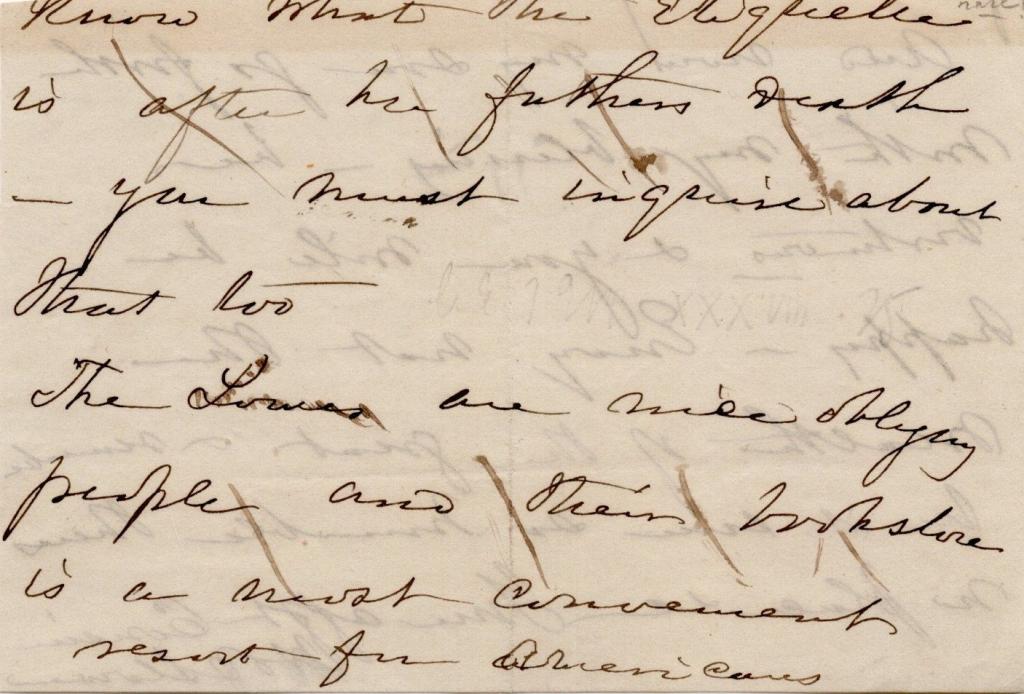 Know what the Etiquette
is after her fathers death
— you must inquire about
that too
The Lowes are nice oblgng
people and their bookstore
is a most convenient
resort for Americans